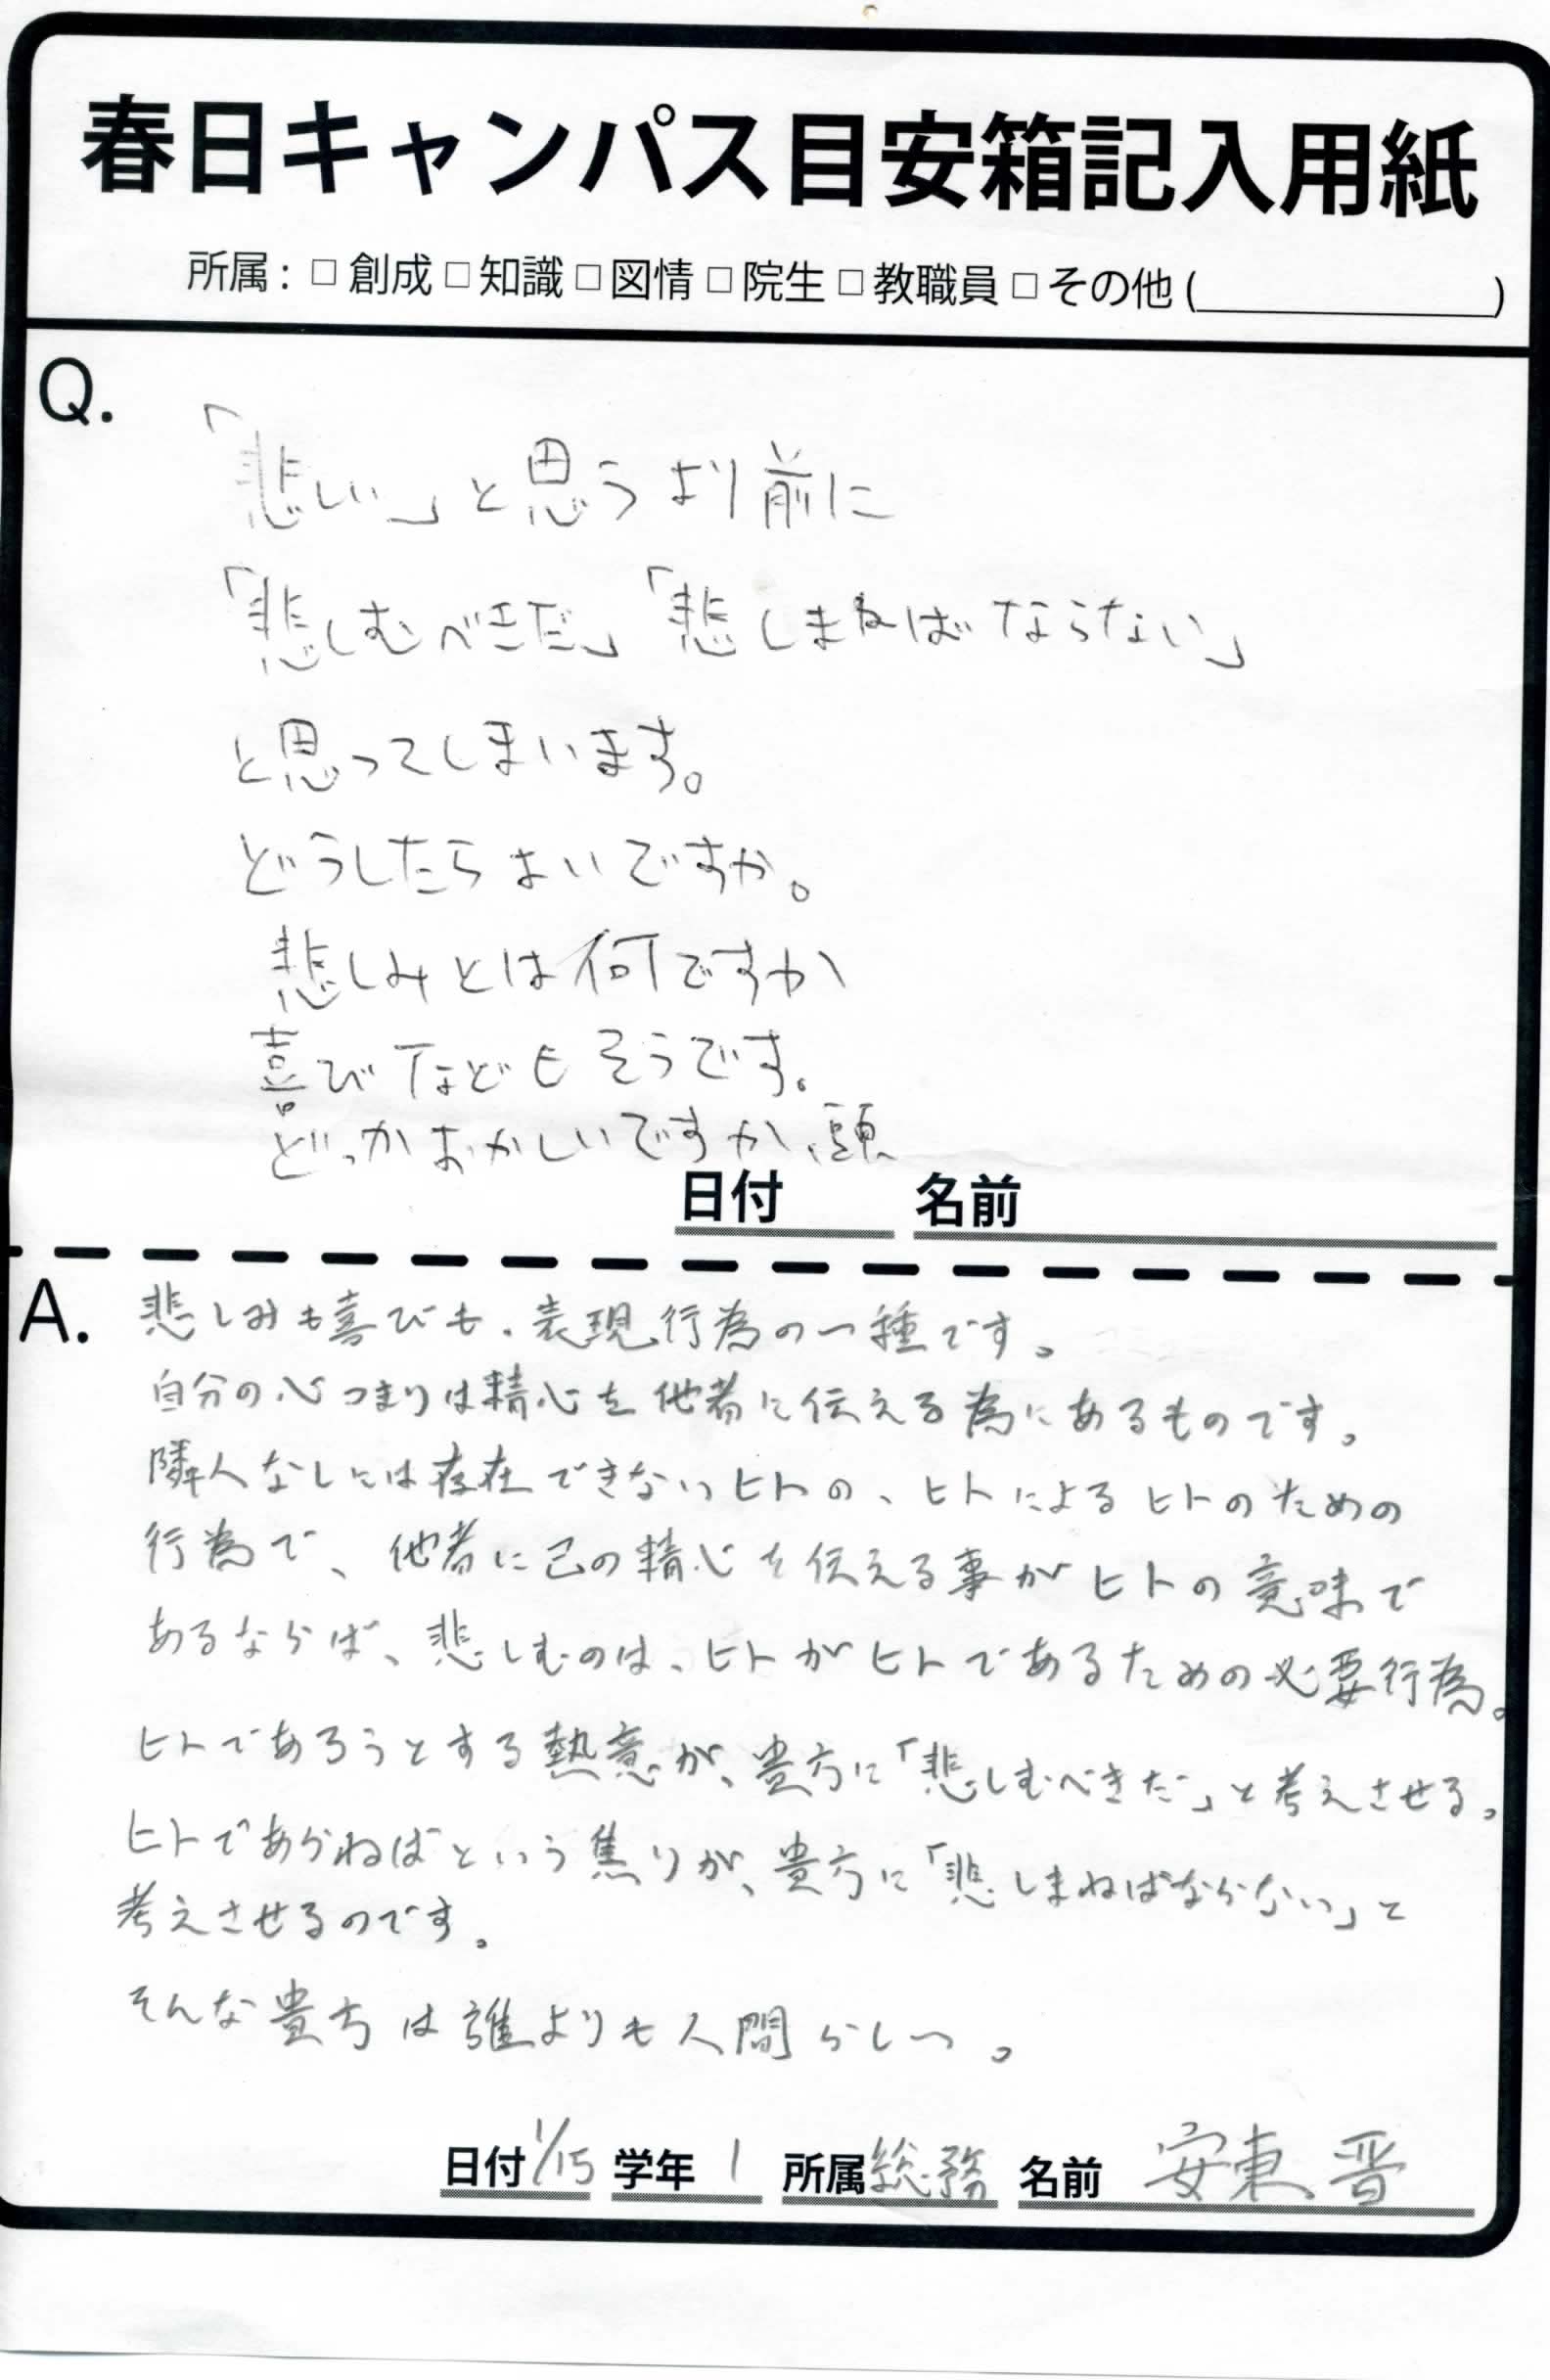 春日キャンパス目安箱記入用紙
所属 : □ 創成 □ 知識 □ 図情 □ 院生 □ 教職員 □ その他 (               )
Q.
「悲しい」と思うより前に
「悲しむべきだ」「悲しまねばならない」
と思ってしまいます。
どうしたらよいですか。
悲しみとは何ですか
喜びなどもそうです。
どっかおかしいですか、頭
日付 名前
A.
悲しみも喜びも、表現行為の一種です。
自分の心つまりは精心を他者に伝える為にあるものです。
隣人なしには存在できないヒトの、ヒトによるヒトのための
行為で、他者に己の精心を伝える事がヒトの意味で
あるならば、悲しむのは、ヒトがヒトであるための必要行為。
ヒトであろうとする熱意が、貴方に「悲しむべきだ」と考えさせる。
ヒトであらねばという焦りが、貴方に「悲しまねばならない」と
考えさせるのです。
そんな貴方は誰よりも人間らしい。
日付 1/15 学年 1 所属 総務 名前 安東晋